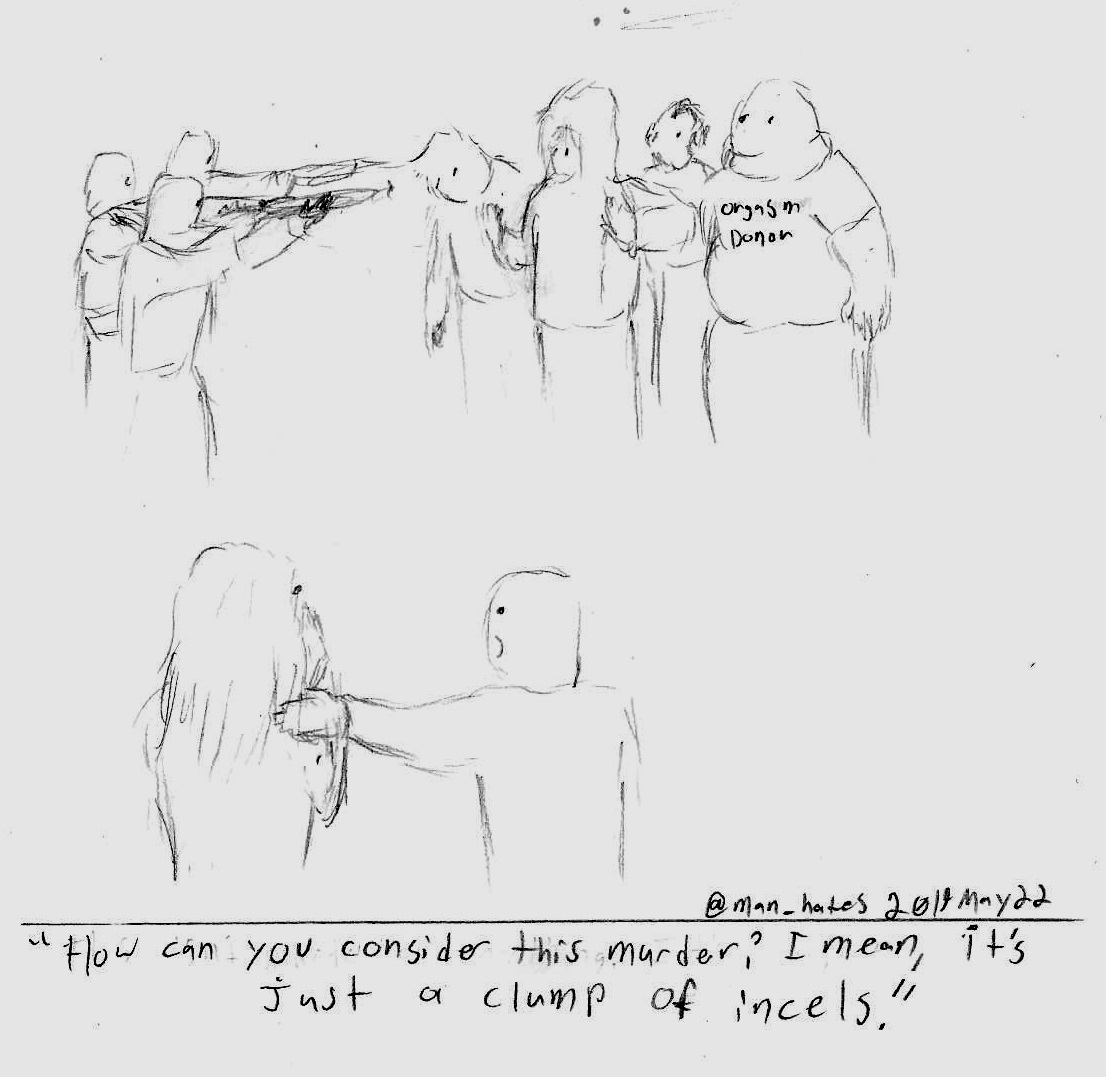 Orgasm
Donor
@man_hates 2019May22
"How can you consider this murder? I mean, it's
just a clump of incels."